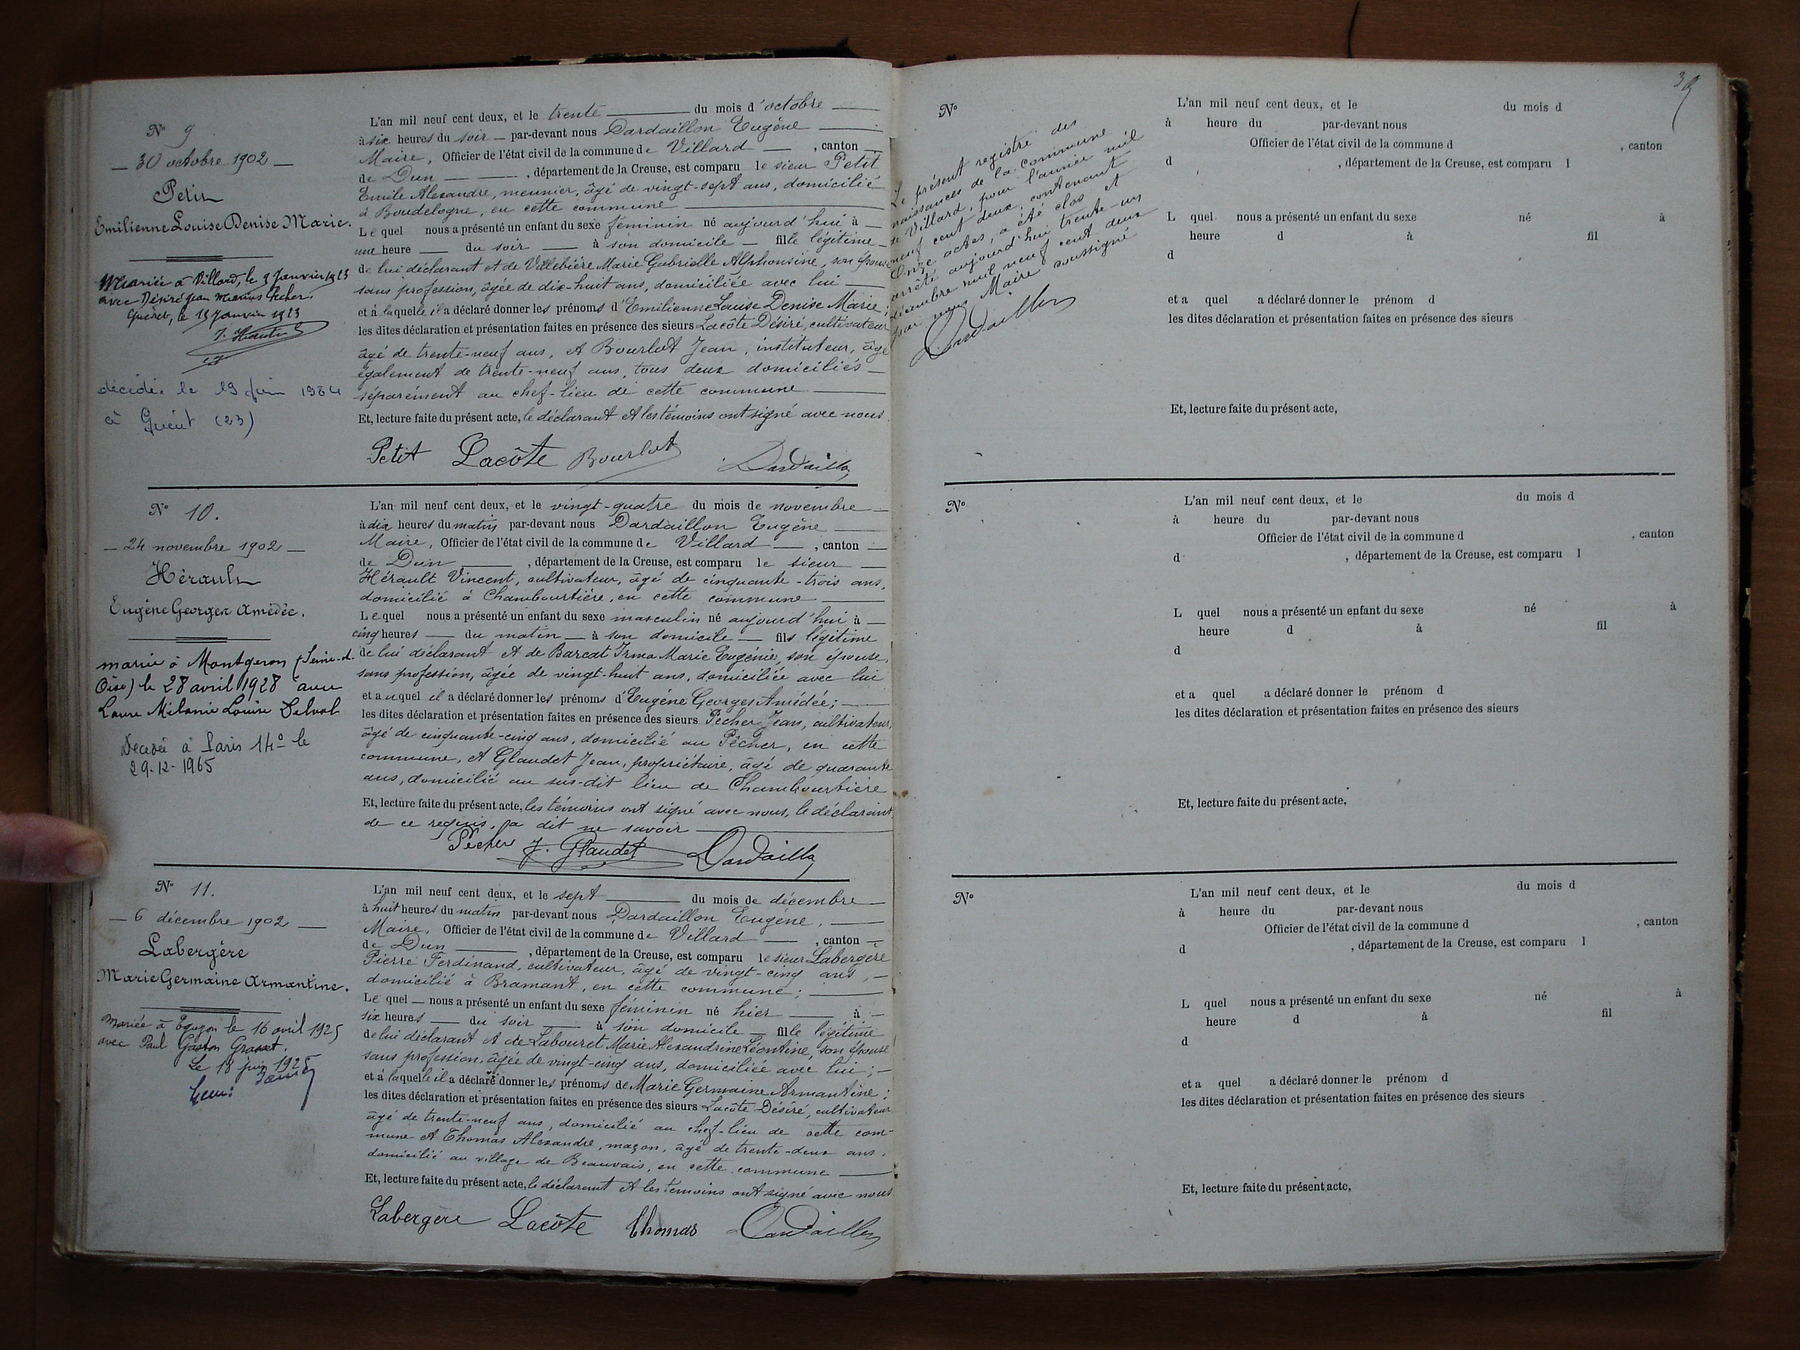 N° 9
30 octobre 1902
Petit
Emilienne Louise Denise Marie.
Mariée à Villard, le 9 Janvier 1923
avec Désiré Jean Marius Pécher.
Guéret, le 13 Janvier 1923
décédée le 19 juin 1984
à Guéret (23)
L'an mil neuf cent deux, et le trente du mois d'octobre
à six heures du soir par-devant nous Dardaillon Eugène
Maire, Officier de l'état civil de la commune de Villard, canton
de Dun, département de la Creuse, est comparu le sieur Petit
Emile Alexandre, meunier, âgé de vingt-sept ans, domicilié
à Boudelogne, en cette commune
Lequel nous a présenté un enfant du sexe féminin né aujourd'hui à
une heure du soir à son domicile fille légitime
de lui déclarant et de Villebière Marie Gabrielle Alphonsine, son épouse
sans profession, âgée de dix-huit ans, domiciliée avec lui
et à laquelle il a déclaré donner les prénoms d'Emilienne Louise Denise Marie;
les dites déclaration et présentation faites en présence des sieurs Lacôte Désiré, cultivateur
âgé de trente-neuf ans, et Bourlot Jean, instituteur, âgé
également de trente-neuf ans, tous deux domiciliés
séparément au chef-lieu de cette commune
Et, lecture faite du présent acte, le déclarant et les témoins ont signé avec nous
Petit Lacôte Bourlot Dardaillon
N° 10.
24 novembre 1902
Hérault
Eugène Georges Amédée.
marié à Montgeron (Seine-et-
Oise) le 28 avril 1928 avec
Laure Mélanie Louise Delval
Décédé à Paris 14e le
29-12-1965
L'an mil neuf cent deux, et le vingt-quatre du mois de novembre
à dix heures du matin par-devant nous Dardaillon Eugène
Maire, Officier de l'état civil de la commune de Villard, canton
de Dun, département de la Creuse, est comparu le sieur
Hérault Vincent, cultivateur, âgé de cinquante-trois ans,
domicilié à Chambourtière, en cette commune
Lequel nous a présenté un enfant du sexe masculin né aujourd'hui à
cinq heures du matin à son domicile fils légitime
de lui déclarant et de Barcat Irma Marie Eugénie, son épouse,
sans profession, âgée de vingt-huit ans, domiciliée avec lui
et auquel il a déclaré donner les prénoms d'Eugène Georges Amédée;
les dites déclaration et présentation faites en présence des sieurs Pécher Jean, cultivateur,
âgé de cinquante-cinq ans, domicilié au Pécher, en cette
commune, et Glaudet Jean, propriétaire, âgé de quarante
ans, domicilié au sus-dit lieu de Chambourtière
Et, lecture faite du présent acte, les témoins ont signé avec nous, le déclarant
de ce requis, a dit ne savoir
Pécher J. Glaudet Dardaillon
N° 11.
6 décembre 1902
Labergère
Marie Germaine Armantine.
Mariée à Eguzon le 16 avril 1925
avec Paul Gaston Grasset.
Le 18 juin 1925
L'an mil neuf cent deux, et le sept du mois de décembre
à huit heures du matin par-devant nous Dardaillon Eugène,
Maire, Officier de l'état civil de la commune de Villard, canton
de Dun, département de la Creuse, est comparu le sieur Labergère
Pierre Ferdinand, cultivateur, âgé de vingt-cinq ans,
domicilié à Bramant, en cette commune;
Lequel nous a présenté un enfant du sexe féminin né hier à
six heures du soir à son domicile fille légitime
de lui déclarant et de Labouret Marie Alexandrine Léontine, son épouse
sans profession, âgée de vingt-cinq ans, domiciliée avec lui;
et à laquelle il a déclaré donner les prénoms de Marie Germaine Armantine;
les dites déclaration et présentation faites en présence des sieurs Lacôte Désiré, cultivateur
âgé de trente-neuf ans, domicilié au chef-lieu de cette com-
mune et Thomas Alexandre, maçon, âgé de trente-deux ans,
domicilié au village de Beauvais, en cette commune
Et, lecture faite du présent acte, le déclarant et les témoins ont signé avec nous
Labergère Lacôte Thomas Dardaillon
39
N°
Le présent registre des
naissances de la commune
de Villard, pour l'année mil
neuf cent deux, contenant
Onze actes, a été clos et
arrêté aujourd'hui trente-un
décembre mil neuf cent deux
par nous Maire soussigné
Dardaillon
L'an mil neuf cent deux, et le du mois d
à heure du par-devant nous
Officier de l'état civil de la commune d , canton
d , département de la Creuse, est comparu l
L quel nous a présenté un enfant du sexe né à
heure d à fil
d
et a quel a déclaré donner le prénom d
les dites déclaration et présentation faites en présence des sieurs
Et, lecture faite du présent acte,
N°
L'an mil neuf cent deux, et le du mois d
à heure du par-devant nous
Officier de l'état civil de la commune d , canton
d , département de la Creuse, est comparu l
L quel nous a présenté un enfant du sexe né à
heure d à fil
d
et a quel a déclaré donner le prénom d
les dites déclaration et présentation faites en présence des sieurs
Et, lecture faite du présent acte,
N°
L'an mil neuf cent deux, et le du mois d
à heure du par-devant nous
Officier de l'état civil de la commune d , canton
d , département de la Creuse, est comparu l
L quel nous a présenté un enfant du sexe né à
heure d à fil
d
et a quel a déclaré donner le prénom d
les dites déclaration et présentation faites en présence des sieurs
Et, lecture faite du présent acte,